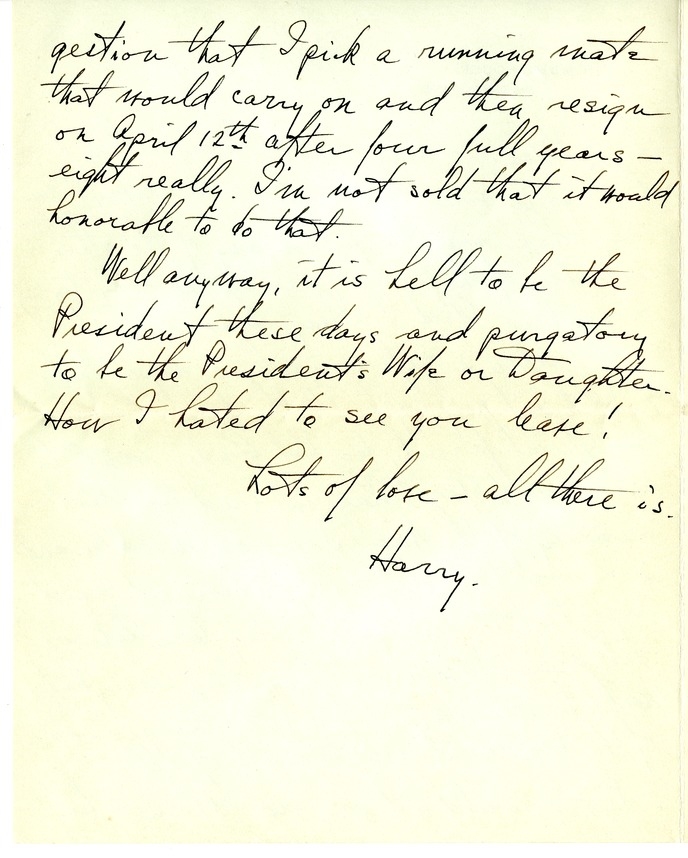 gestion that I pick a running mate
that would carry on and then resign
on April 12th after four full years —
eight really. I'm not sold that it would
honorable to do that.
Well anyway, it is hell to be the
President these days and purgatory
to be the President's Wife or Daughter.
How I hated to see you leave!
Lots of love — all there is.
Harry.